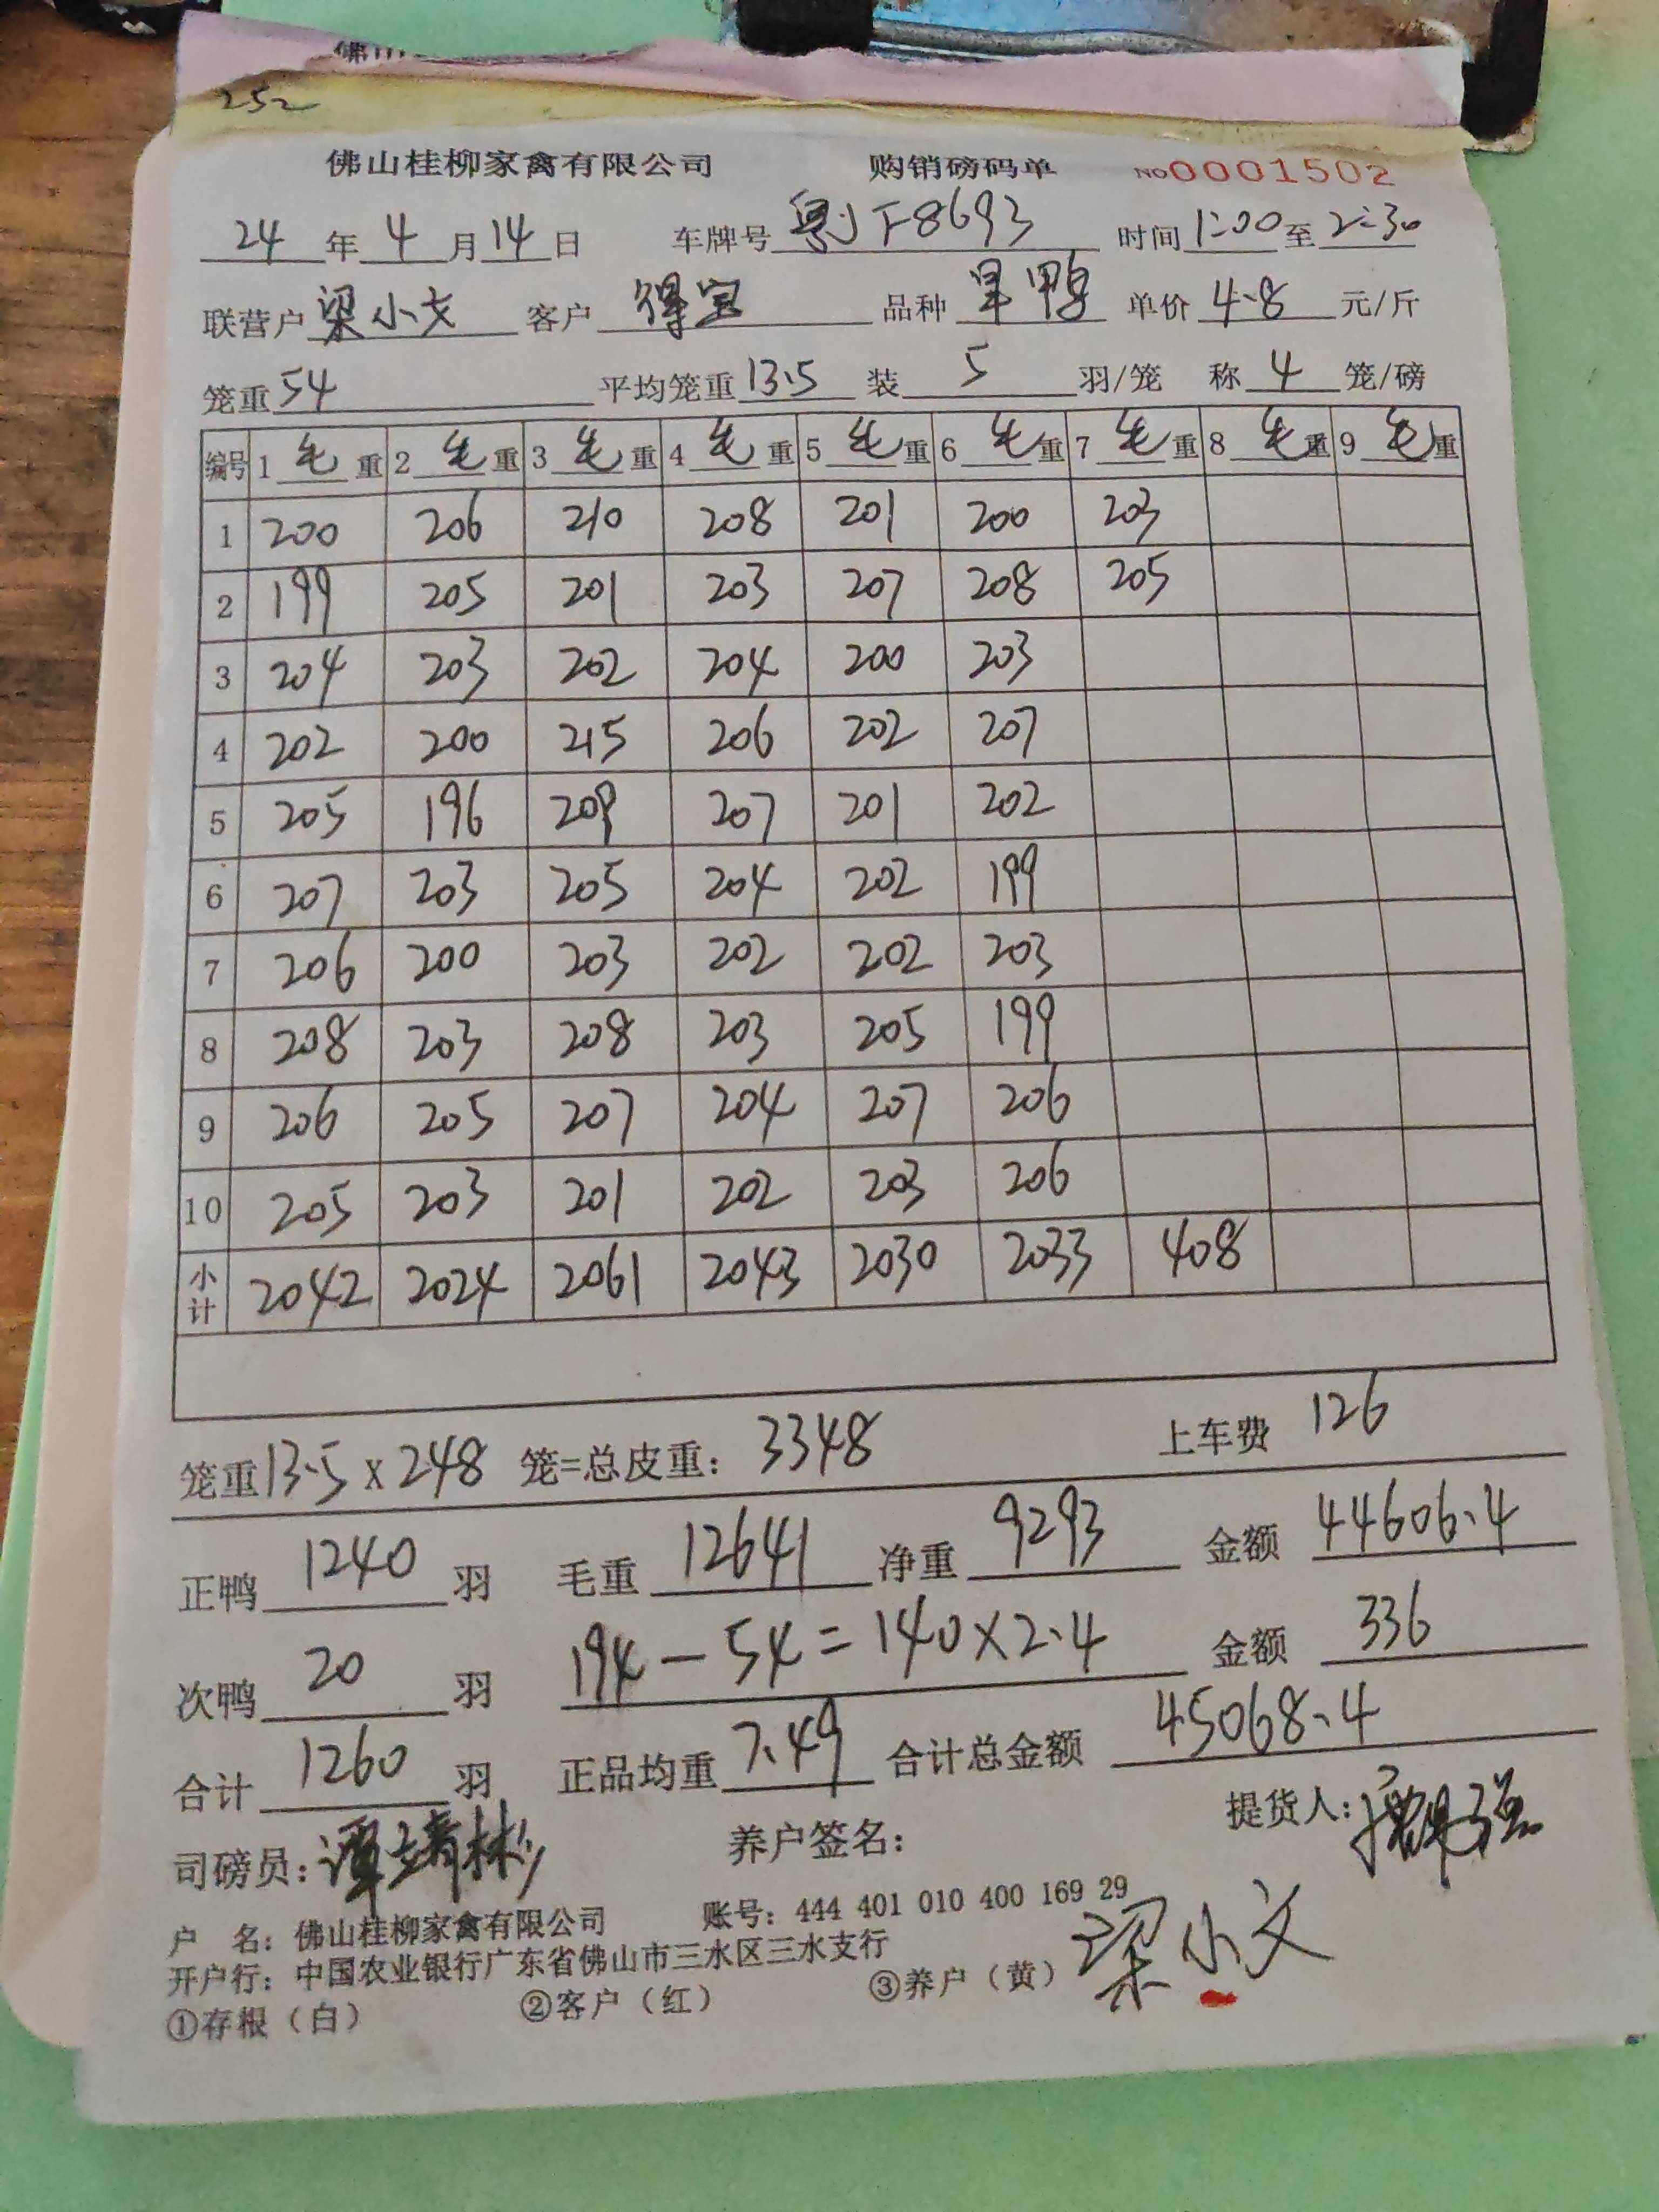 佛山
252
佛山桂柳家禽有限公司 购销磅码单 No 0001502
24 年 4 月 14 日 车牌号 粤J F8693 时间 1:00 至 2:30
联营户 梁小文 客户 得宝 品种 旱鸭 单价 4.8 元/斤
笼重 54 平均笼重 13.5 装 5 羽/笼 称 4 笼/磅
编号 1 毛 重 2 毛 重 3 毛 重 4 毛 重 5 毛 重 6 毛 重 7 毛 重 8 毛 重 9 毛 重
1 200 206 210 208 201 200 203
2 199 205 201 203 207 208 205
3 204 203 202 204 200 203
4 202 200 215 206 202 207
5 205 196 209 207 201 202
6 207 203 205 204 202 199
7 206 200 203 202 202 203
8 208 203 208 203 205 199
9 206 205 207 204 207 206
10 205 203 201 202 203 206
小计 2042 2024 2061 2043 2030 2033 408
笼重 13.5 x 248 笼=总皮重: 3348 上车费 126
正鸭 1240 羽 毛重 12641 净重 9293 金额 44606.4
次鸭 20 羽 194-54=140×2.4 金额 336
合计 1260 羽 正品均重 7.49 合计总金额 45068.4
司磅员: 谭靖彬 养户签名: 提货人:
户 名: 佛山桂柳家禽有限公司 账号: 444 401 010 400 169 29
梁小文
开户行: 中国农业银行广东省佛山市三水区三水支行
①存根（白） ②客户（红） ③养户（黄）